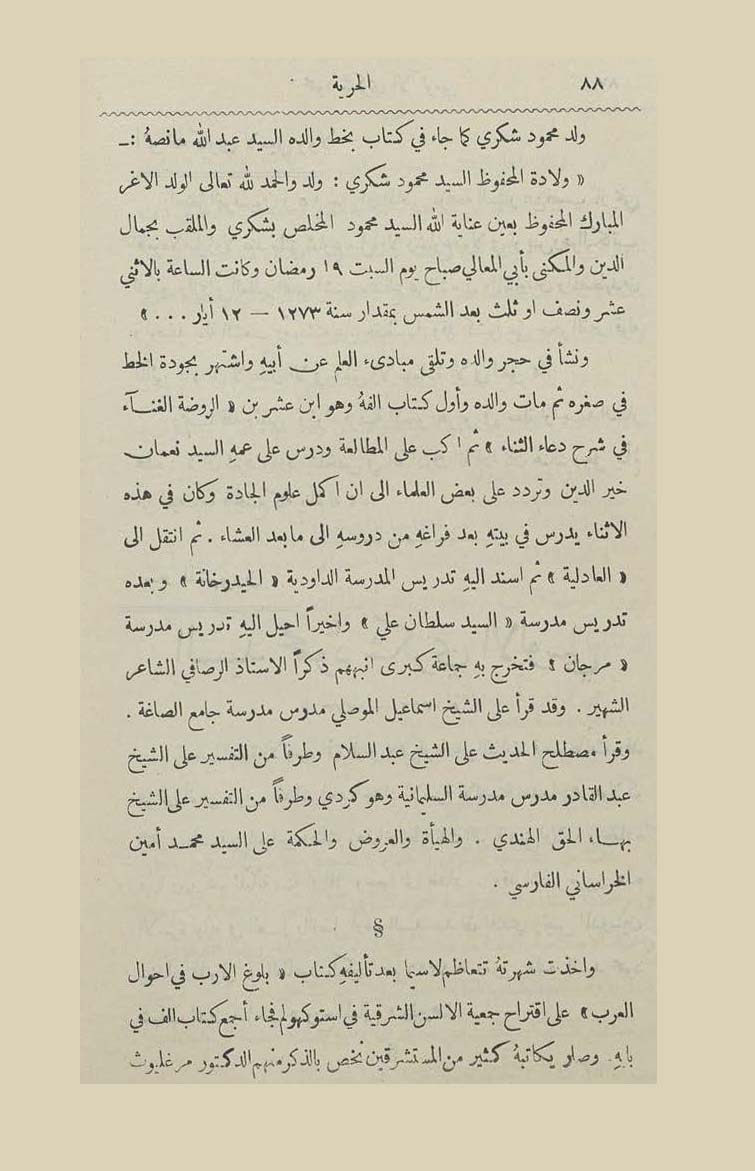 ٨٨ الحرية
ولد محمود شكري كما جاء في كتاب بخط والده السيد عبد الله ما نصهُ : ـ
« ولادة المحفوظ السيد محمود شكري : ولد والحمد لله تعالى الولد الاغر
المبارك المحفوظ بعين عناية الله السيد محمود المخلص بشكري والملقب بجمال
الدين والمكنى بأبي المعالي صباح يوم السبت ١٩ رمضان وكانت الساعة بالاثني
عشر ونصف او ثلث بعد الشمس بمقدار سنة ١٢٧٣ — ١٢ أيار . . . »
ونشأ في حجر والده وتلقى مبادىء العلم عن أبيهِ واشتهر بجودة الخط
في صغره ثم مات والده وأول كتاب الفهُ وهو ابن عشرين « الروضة الغنآء
في شرح دعاء الثناء » ثم اكب على المطالعة ودرس على عمهِ السيد نعمان
خير الدين وتردد على بعض العلماء الى ان اكمل علوم الجادة وكان في هذه
الاثناء يدرس في بيتهِ بعد فراغهِ من دروسهِ الى ما بعد العشاء . ثم انتقل الى
« العادلية » ثم اسند اليهِ تدريس المدرسة الداودية « الحيدرخانة » وبعده
تدريس مدرسة « السيد سلطان علي » واخيراً احيل اليهِ تدريس مدرسة
« مرجان » فتخرج بهِ جماعة كبرى انبههم ذكراً الاستاذ الرصافي الشاعر
الشهير . وقد قرأ على الشيخ اسماعيل الموصلي مدرس مدرسة جامع الصاغة .
وقرأ مصطلح الحديث على الشيخ عبد السلام وطرفاً من التفسير على الشيخ
عبد القادر مدرس مدرسة السليمانية وهو كردي وطرفاً من التفسير على الشيخ
بهـاء الحق الهندي . والهيأة والعروض والحكمة على السيد محمـد أمين
الخراساني الفارسي .
§
واخذت شهرتهُ تتعاظم لاسيما بعد تأليفهِ كتاب « بلوغ الارب في احوال
العرب » على اقتراح جمعية الالسن الشرقية في استوكهولم فجاء أجمع كتاب الف في
بابهِ . وصار يكاتبهُ كثير من المستشرقين نخص بالذكر منهم الدكتور مرغليوث